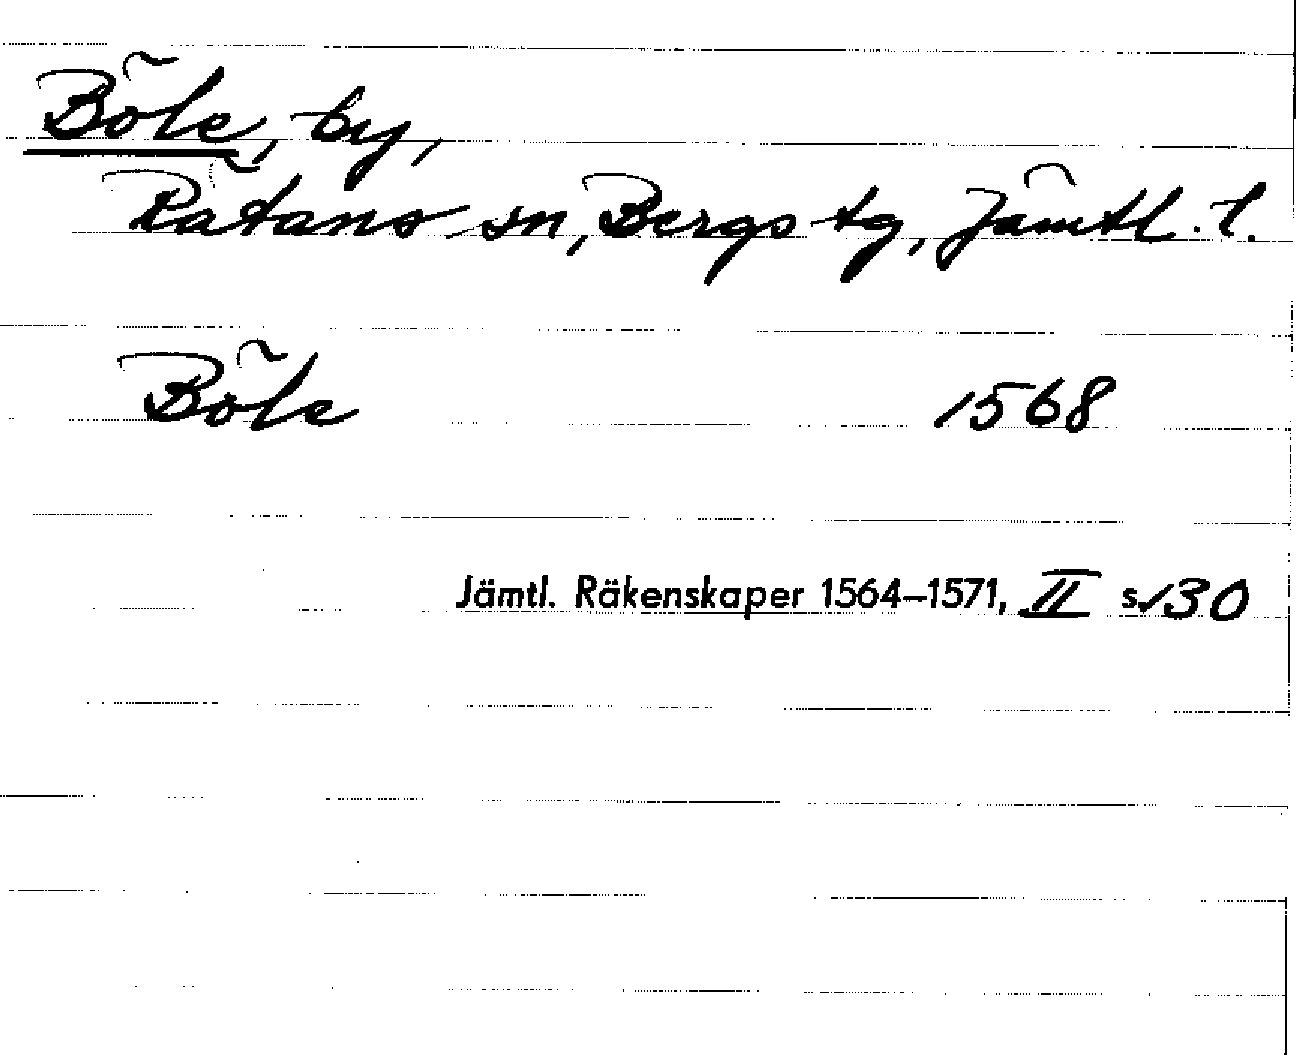 Böle, by,
Rätans sn, Bergs tg, Jämtl. l.
Böle 1568
Jämtl. Räkenskaper 1564–1571, II s. 130